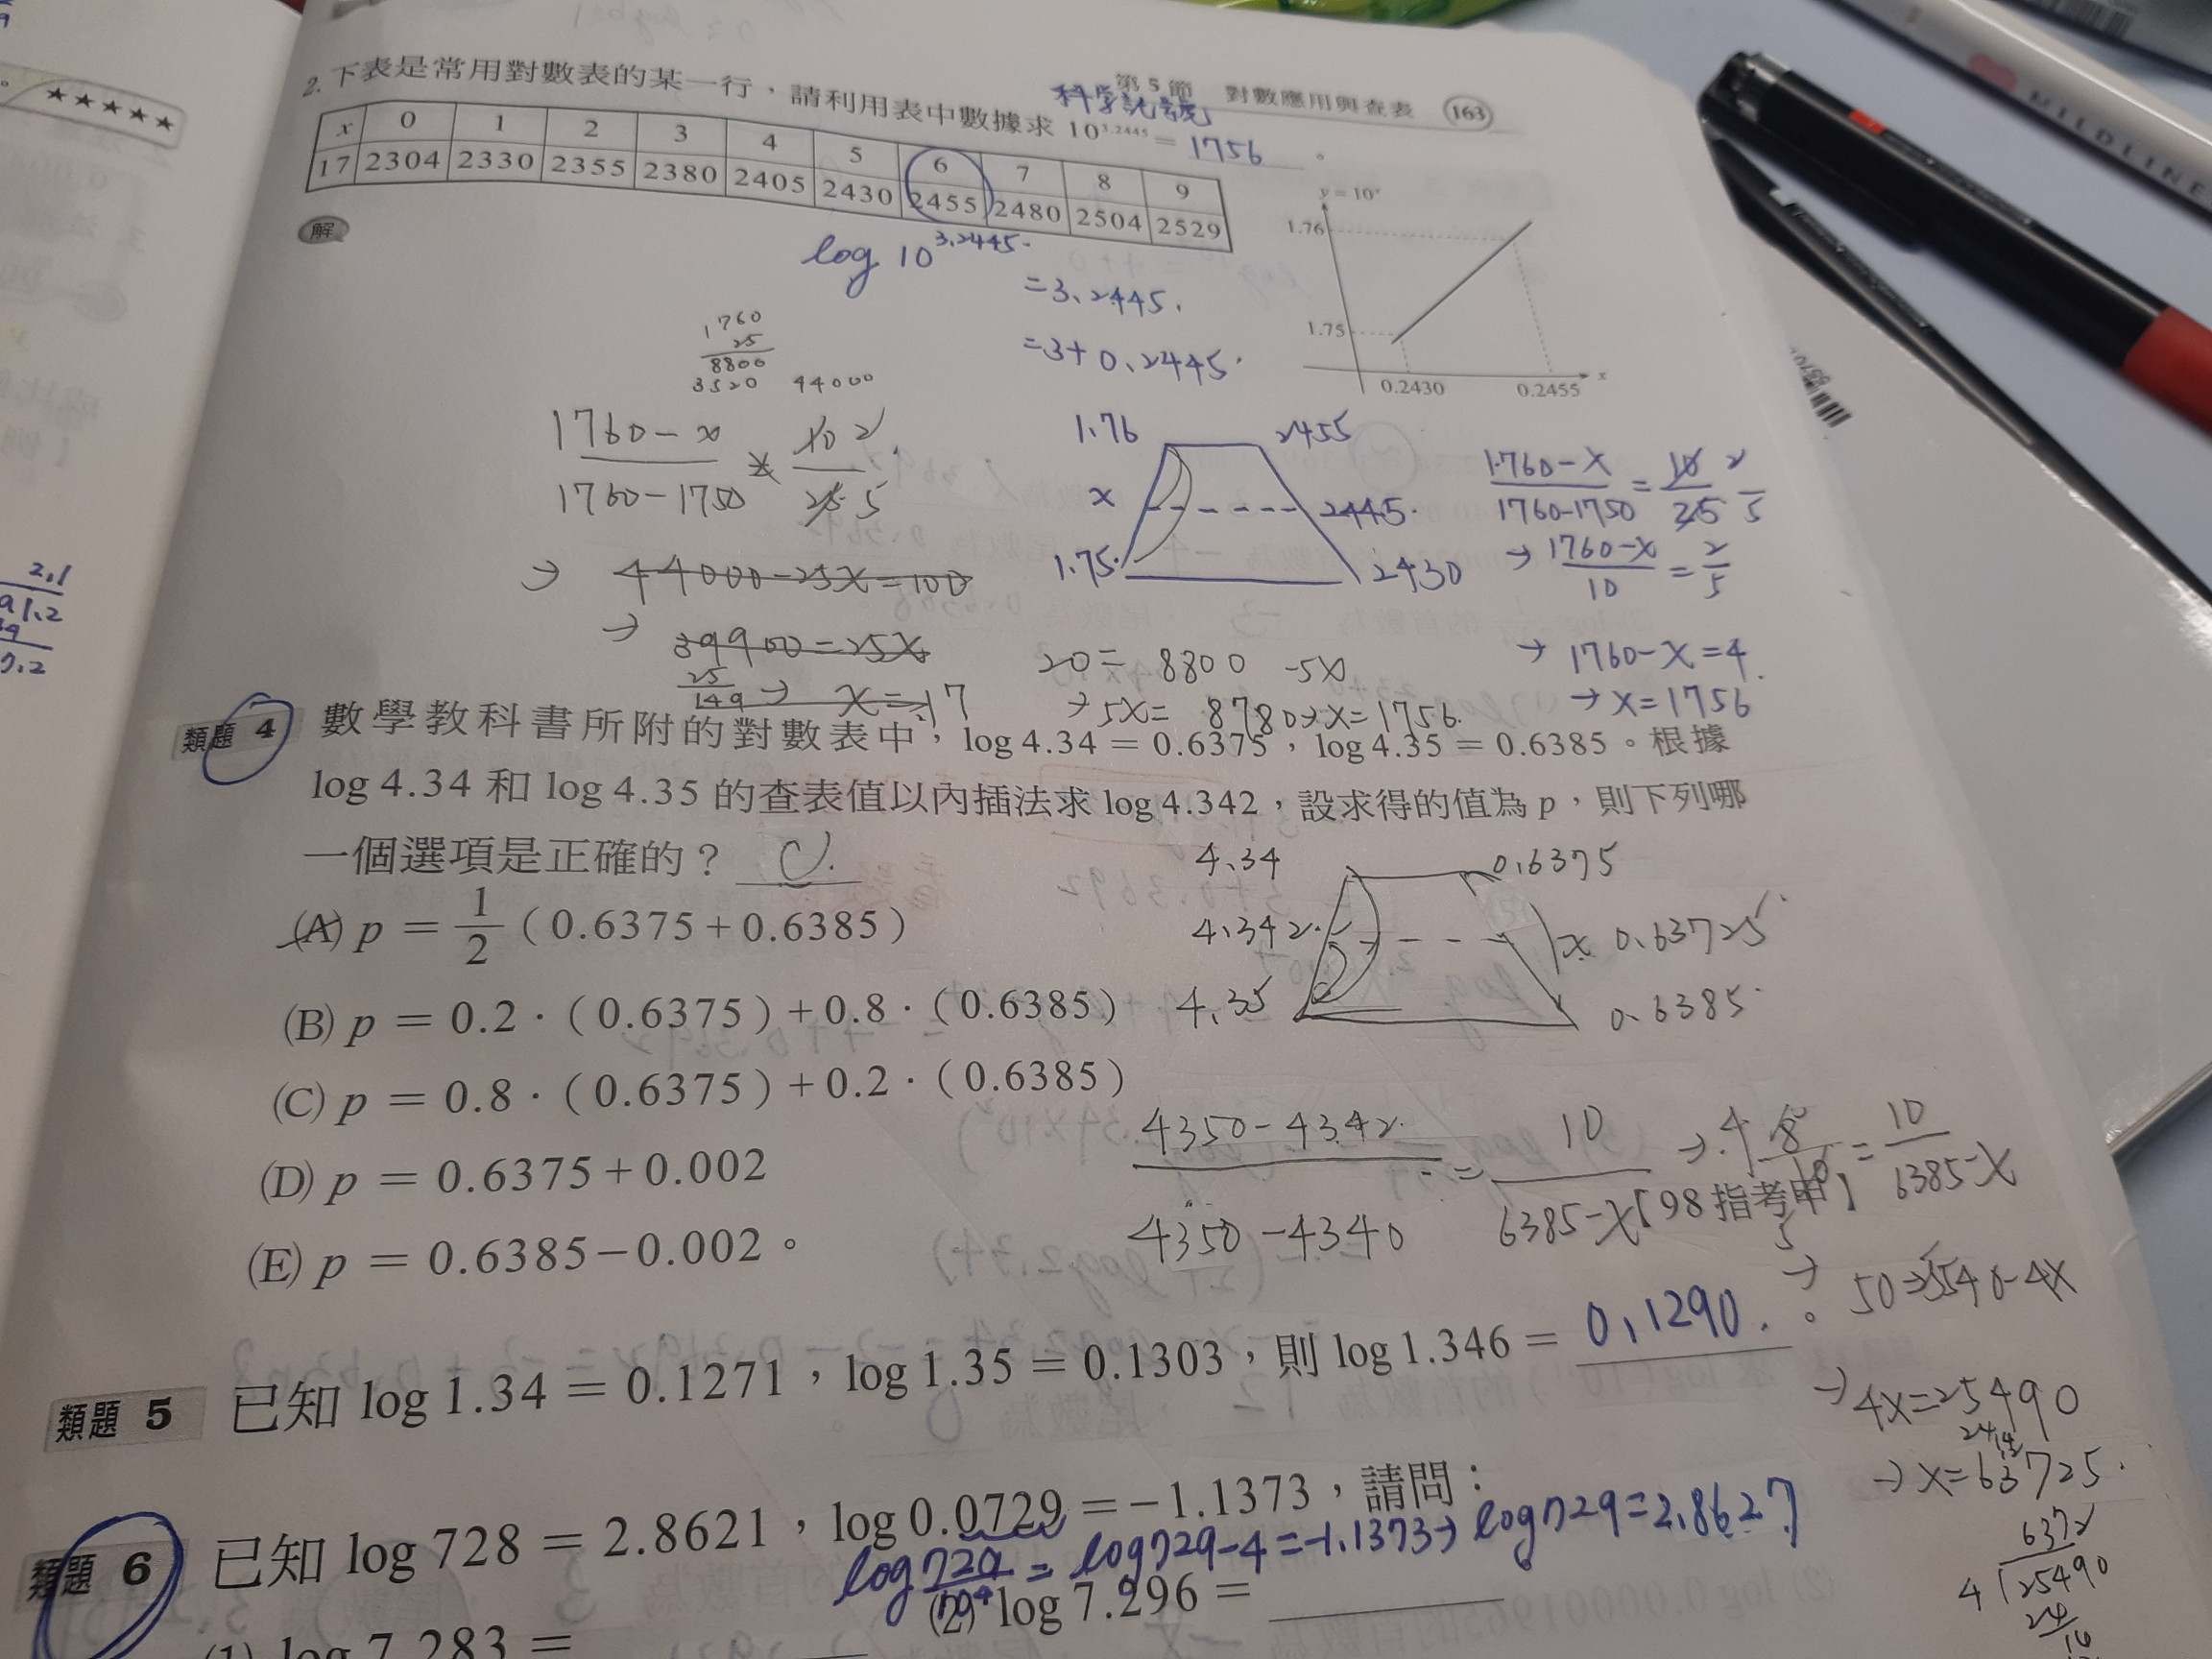 第 5 節 對數應用與查表 163
科學記號
2. 下表是常用對數表的某一行，請利用表中數據求 10^3.2445 = 1756 。
x 0 1 2 3 4 5 6 7 8 9
17 2304 2330 2355 2380 2405 2430 2455 2480 2504 2529
解
log 10^3.2445
=3.2445.
=3+0.2445.
y = 10ˣ
1.76
1.75
0.2430 0.2455 x
1760
25
8800
3520 44000
1760-x / 1760-1750 10 2 / 25 5
→ 44000-25X=100
→ 39900=25X
25
149 → X=17
1.76 2455
x 2445.
1.75. 2430
20= 8800 -5X
→ 5X= 8780→X=1756.
1760-X / 1760-1750 = 10 2 / 25 5
→ 1760-X / 10 = 2 / 5
→ 1760-X=4
→ X=1756
類題 4 數學教科書所附的對數表中，log 4.34 = 0.6375，log 4.35 = 0.6385。根據
log 4.34 和 log 4.35 的查表值以內插法求 log 4.342，設求得的值為 p，則下列哪
一個選項是正確的？ C.
(A) p = 1/2 (0.6375+0.6385)
(B) p = 0.2 · (0.6375)+0.8 · (0.6385)
(C) p = 0.8 · (0.6375)+0.2 · (0.6385)
(D) p = 0.6375+0.002
(E) p = 0.6385−0.002。
【98 指考甲】
4.34 0.6375
4.342. x 0.63725
4.35 0.6385
4350-4342 / 4350-4340 = 10 / 6385-X
→ 4 8 / 10 5 = 10 / 6385-X
→ 50=25540-4X
→ 4X=25490
→ X=63725.
6372
4 25490
24
類題 5 已知 log 1.34 = 0.1271，log 1.35 = 0.1303，則 log 1.346 = 0.1290. 。
類題 6 已知 log 728 = 2.8621，log 0.0729 = −1.1373，請問：
log 729/10⁴ = log729-4=-1.1373→ log729=2.8627
(1) log 7.283 =
(2) log 7.296 =
2.1
91.2
★★★★★
MILDLINE